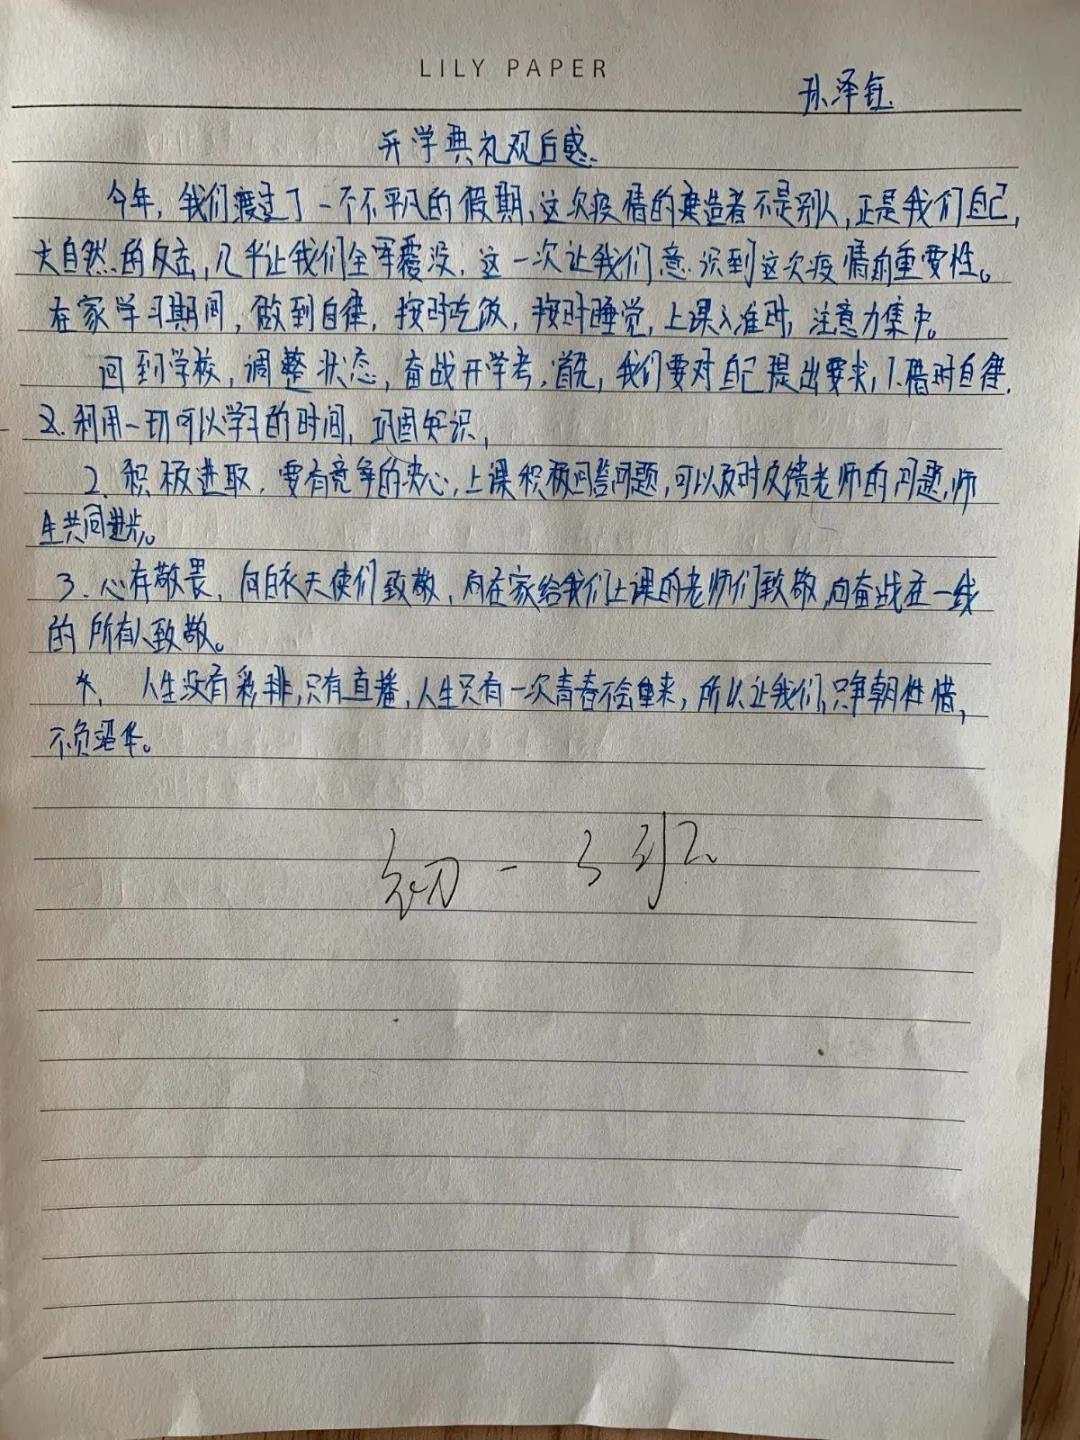 LILY PAPER
孙泽钰
开学典礼观后感
今年,我们度过了一个不平凡的假期,这次疫情的建造者不是别人,正是我们自己,
大自然的反击,几乎让我们全军覆没,这一次让我们意识到这次疫情的重要性。
在家学习期间,做到自律,按时吃饭,按时睡觉,上课入准时,注意力集中。
回到学校,调整状态,奋战开学考,首先,我们要对自己提出要求,1.惜时自律.
2.利用一切可以学习的时间,巩固知识,
2.积极进取.要有竞争的决心,上课积极回答问题,可以及时反馈老师的问题,师
生共同进步。
3.心存敬畏,向白衣天使们致敬,向在家给我们上课的老师们致敬,向奋战在一线
的所有人致敬。
人生没有彩排,只有直播,人生只有一次青春不会重来,所以让我们,只争朝惜,
不负韶华。
初一3班